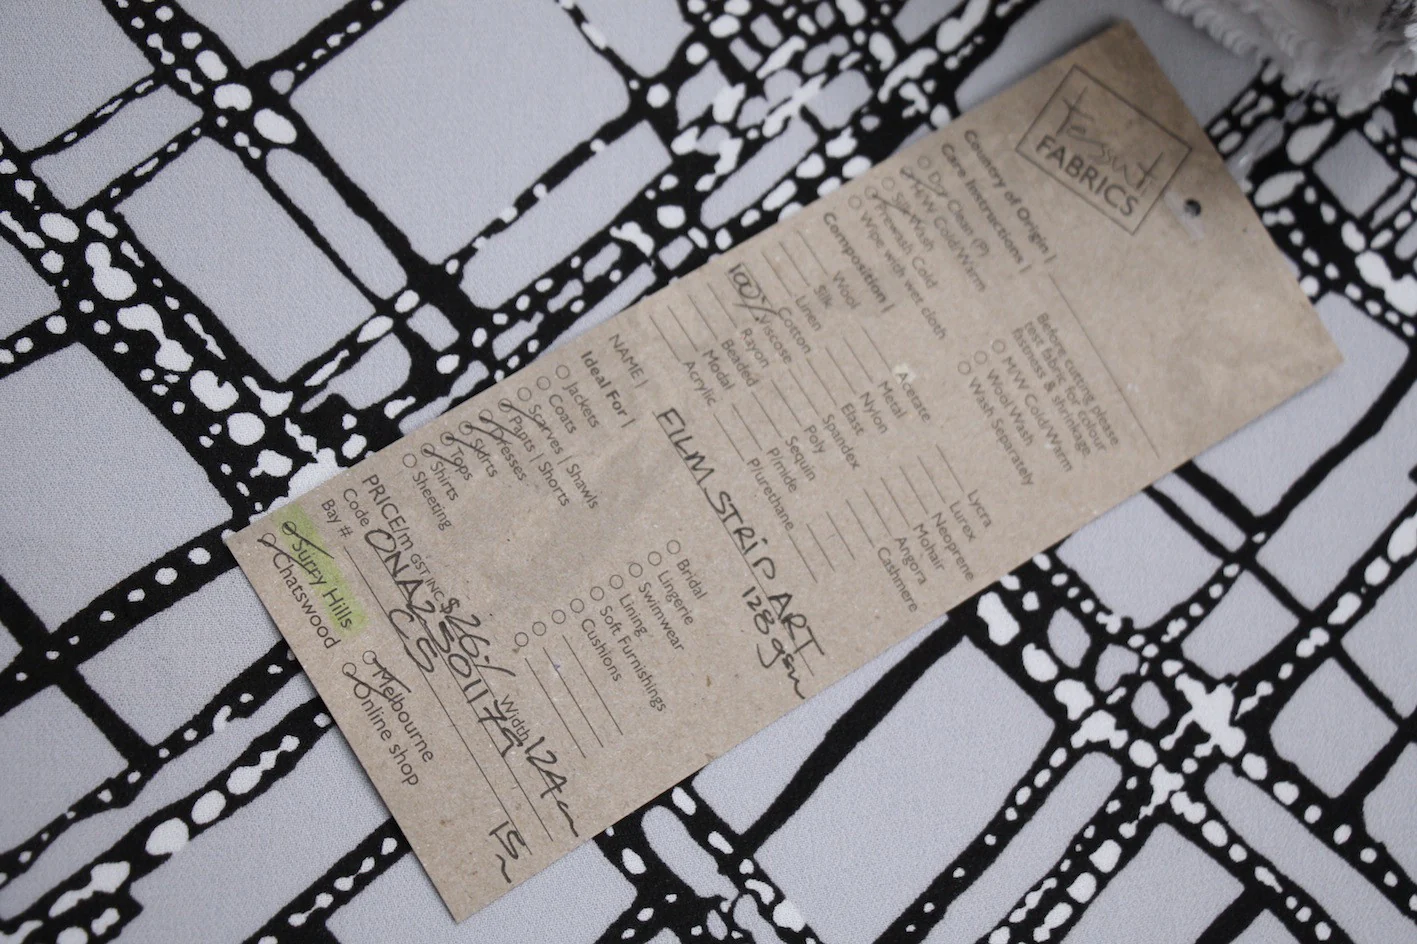 tessuti
FABRICS
Country of Origin |
Care Instructions |
Dry Clean (P)
M/W Cold/Warm
Silk Wash
Prewash Cold
Wipe with wet cloth
Before cutting please
test fabric for colour
fastness & shrinkage.
M/W Cold/Warm
Wool Wash
Wash Separately
Composition |
Wool Acetate Lycra
Silk Metal Lurex
Linen Nylon Neoprene
Cotton Elast Mohair
100% Viscose Spandex Angora
Rayon Poly Cashmere
Beaded Sequin
Modal P/mide
Acrylic P/urethane
NAME | FILM STRIP ART
128gsm
Ideal For |
Jackets Bridal
Coats Lingerie
Scarves | Shawls Swimwear
Pants | Shorts Lining
Dresses Soft Furnishings
Skirts Cushions
Tops
Shirts
Sheeting
PRICE/m GST INC $26/ Width 124cm
Code ONA2830117
Bay # 15m
Surry Hills Melbourne
Chatswood Online shop